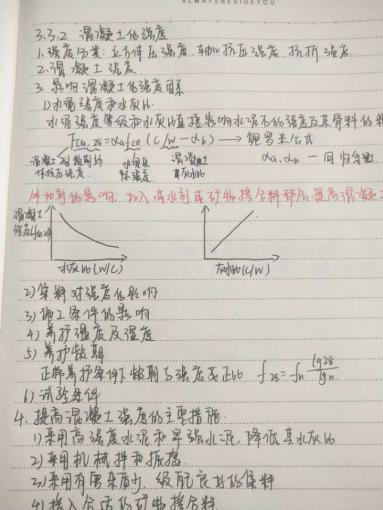 ALWAYSBESIDEYOU
3.3.2 混凝土的强度
1.强度分类:立方体压强度,轴心抗压强度,抗折强度.
2.混凝土强度
3.影响混凝土的强度因素
1)水泥强度和水灰比
水泥强度等级和水灰比直接影响水泥石的强度及其骨料的
fcu,28=αafce(C/W-αb) → 鲍罗米公式
混凝土28d龄期的 水泥 混凝土 αa,αb — 回归系数
抗压强度 强度 灰水比
外加剂的影响:加入减水剂或矿物掺合料都会提高混凝土
混凝土
强度
水灰比(W/C) 灰水比(C/W)
2)集料对强度的影响
3)施工条件的影响
4)养护温度及湿度
5)养护龄期
正常养护条件下龄期与强度成正比 f28=fn lg28/lgn
6)试验条件
4.提高混凝土强度的主要措施
1)采用高强度水泥和早强水泥,降低其水灰比
2)采用机械拌和振捣
3)采用有害杂质少,级配良好的集料
4)掺入合适的矿物掺合料